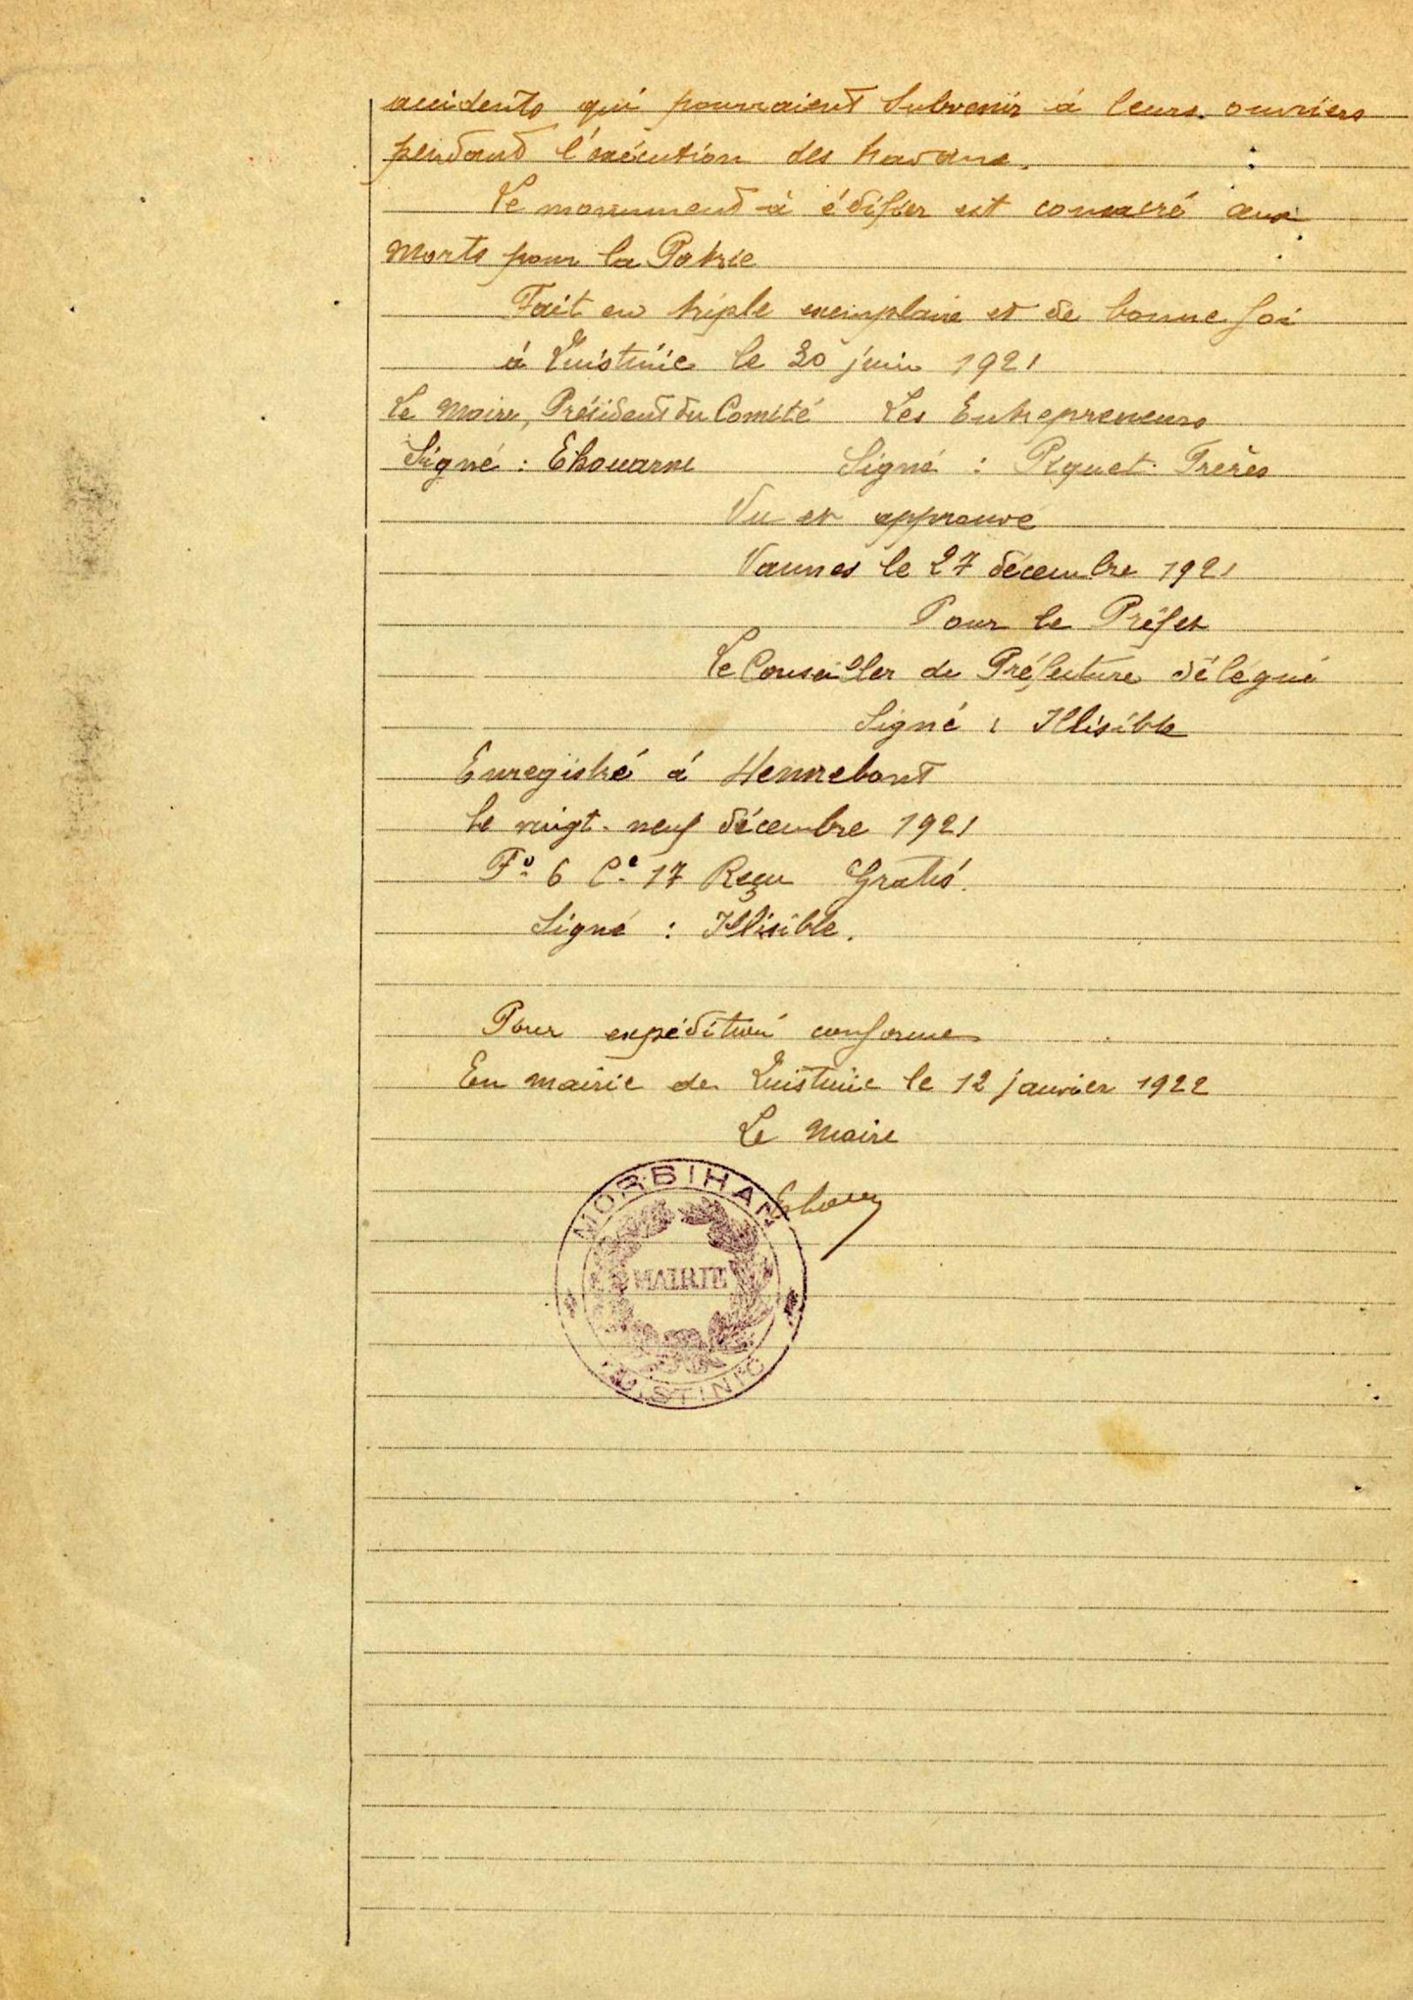 accidents qui pourraient Subvenir à leurs ouvriers
pendant l'exécution des travaux.
Le monument à édifier est consacré aux
Morts pour la Patrie
Fait en triple exemplaire et de bonne foi
à Quistinic le 30 juin 1921
Le Maire, Président du Comité Les Entrepreneurs
Signé : Ehouarne Signé : Piquet Frères
Vu et approuvé
Vannes le 27 décembre 1921
Pour le Préfet
Le Conseiller de Préfecture délégué
Signé : Illisible
Enregistré à Hennebont
le vingt-neuf décembre 1921
Fº 6 Ce 17 Reçu Gratis.
Signé : Illisible.
Pour expédition conforme
En mairie de Quistinic le 12 janvier 1922
Le Maire
MORBIHAN
MAIRIE
QUISTINIC